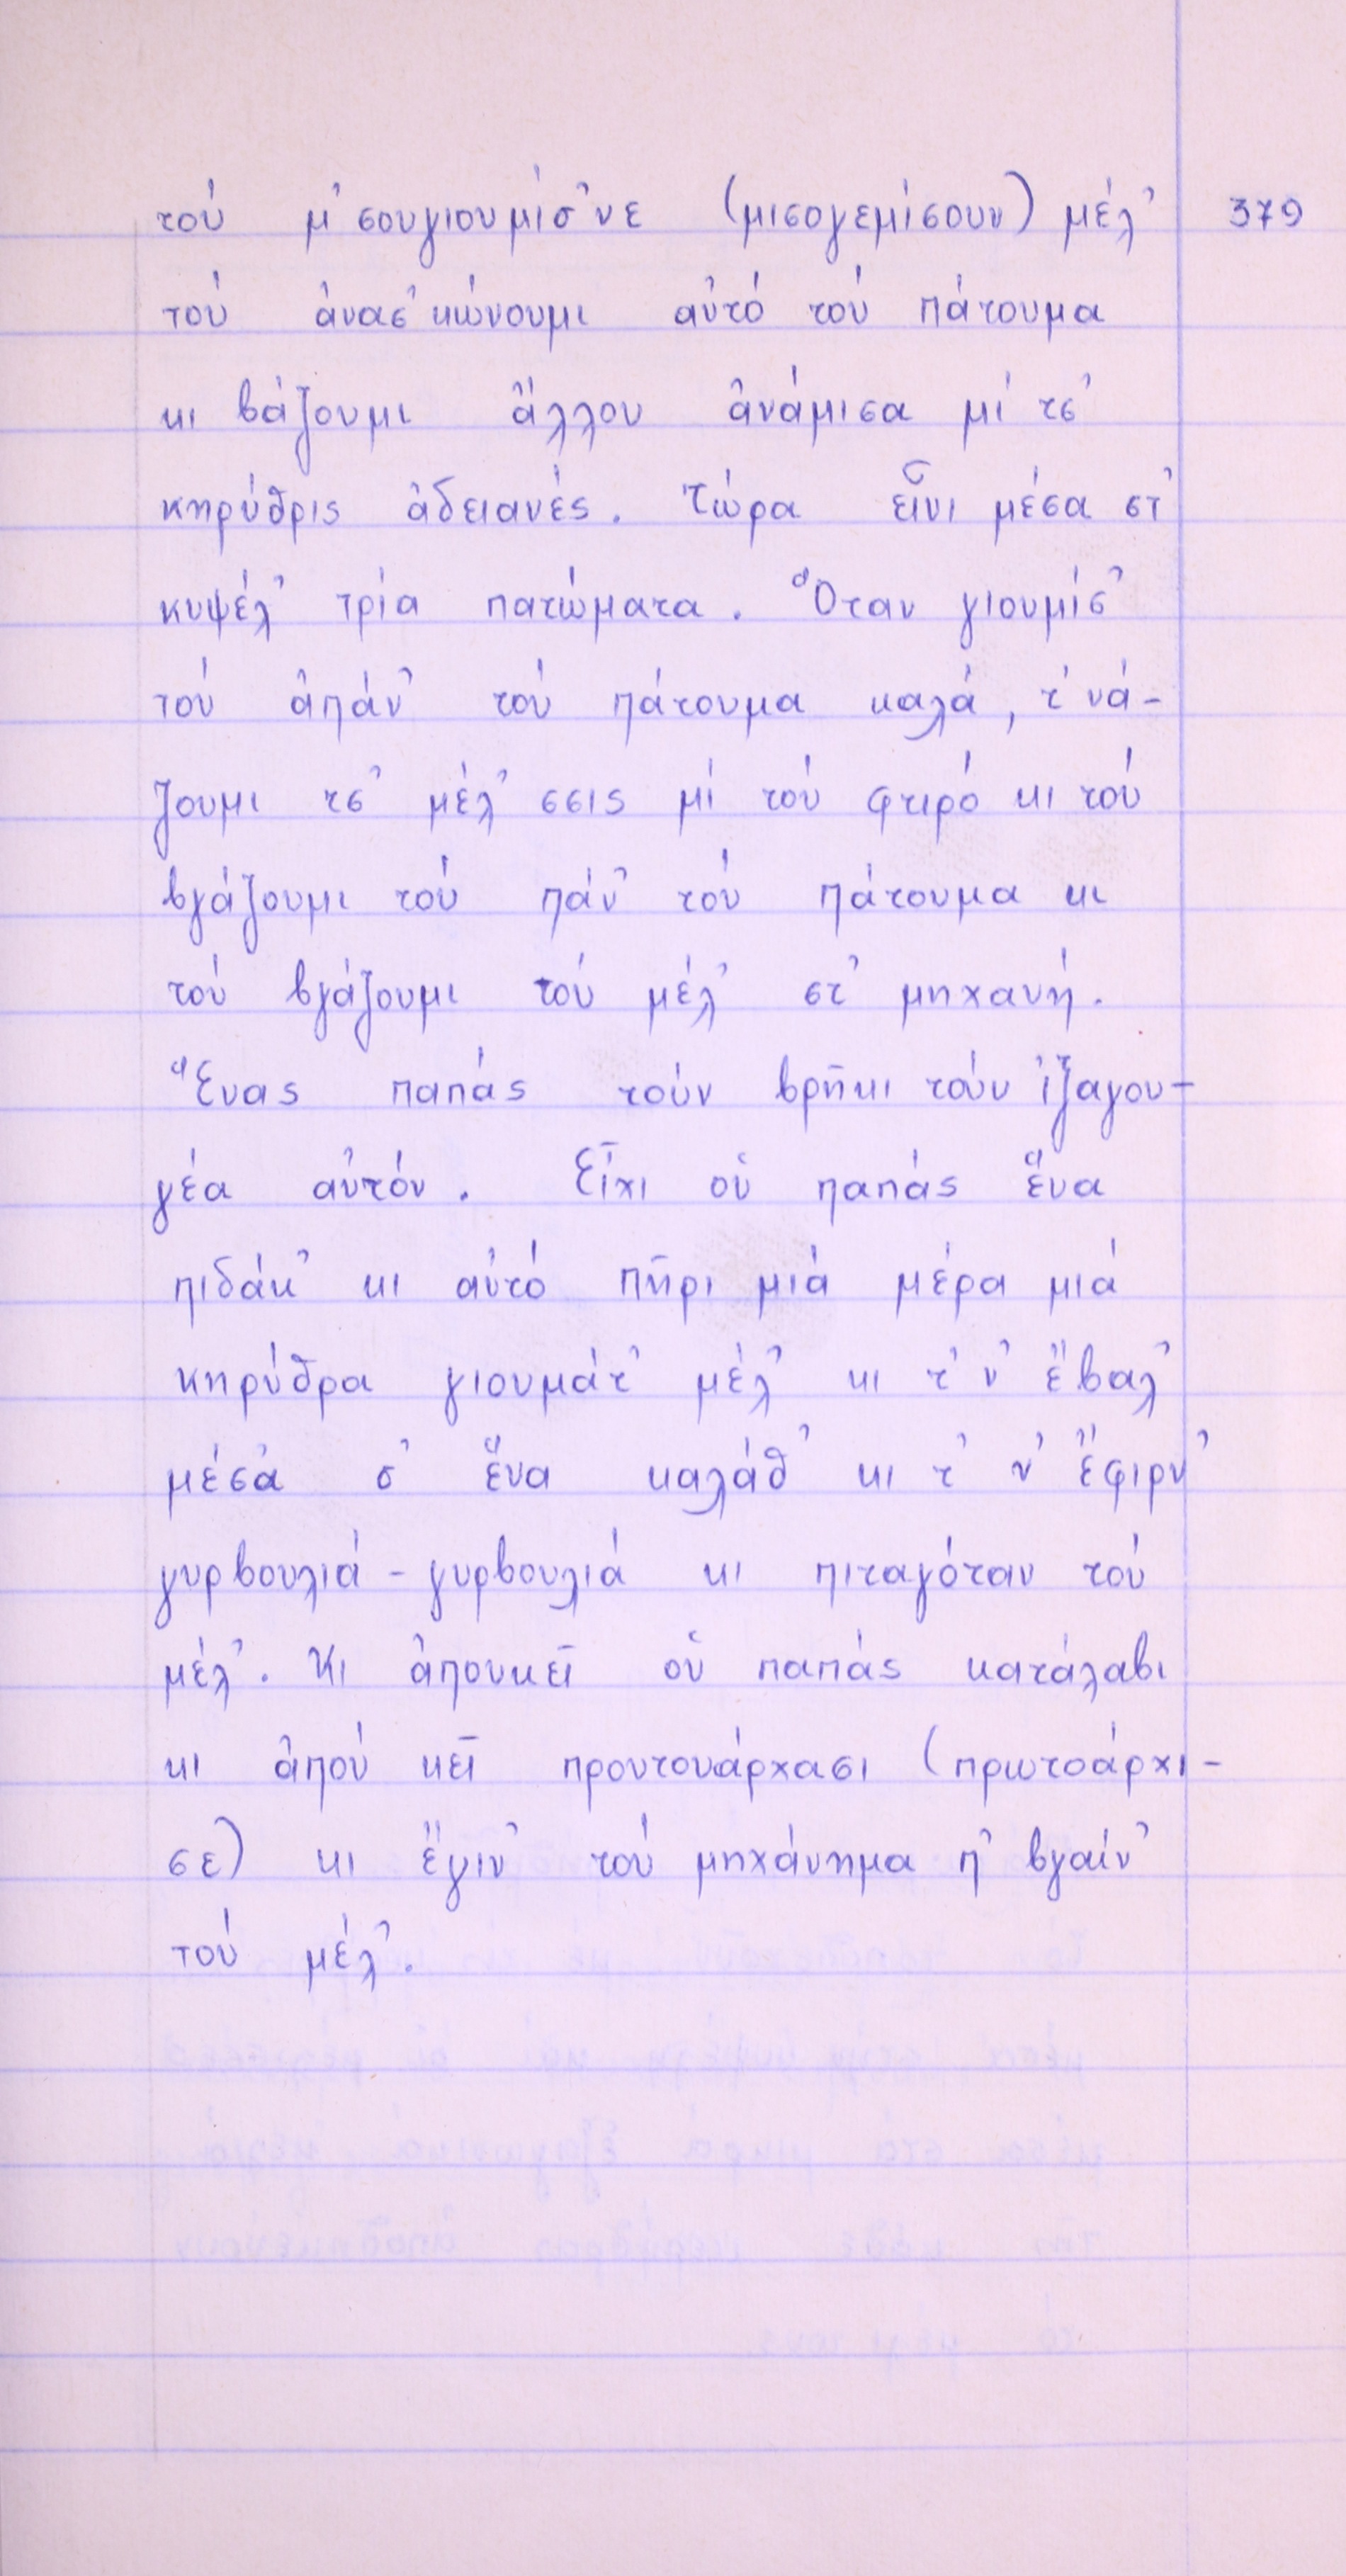 τού μ'σουγιουμίσ'νε (μισογεμίσουν) μέλ' 379
τού ἀνασ'κώνουμι αὐτό τού πάτουμα
κι βάζουμι ἄλλου ἀνάμισα μί τσ'
κηρύθρις ἀδειανές. Τώρα εἶνι μέσα στ'
κυψέλ' τρία πατώματα. Ὅταν γιουμίσ'
τού ἀπάν' τού πάτουμα καλά, τ'νά-
ζουμι τσ' μέλ'σσις μί τού φτιρό κι τού
βγάζουμι τού πάν' τού πάτουμα κι
τού βγάζουμι τού μέλ' στ' μηχανή.
Ἕνας παπάς τούν βρῆκι τούν ἰξαγου-
γέα αὐτόν. Εἶχι οὑ παπάς ἕνα
πιδάκ' κι αὐτό πῆρι μιά μέρα μιά
κηρύθρα γιουμάτ' μέλ' κι τ'ν' ἔβαλ'
μέσα σ' ἕνα καλάθ' κι τ'ν' ἔφιρν'
γυρβουλιά-γυρβουλιά κι πιταγόταν τού
μέλ'. Κι ἀπουκεῖ οὑ παπάς κατάλαβι
κι ἀπού κεῖ προυτουάρχασι (πρωτοάρχι-
σε) κι ἔγιν' τού μηχάνημα π' βγαίν'
τού μέλ'.